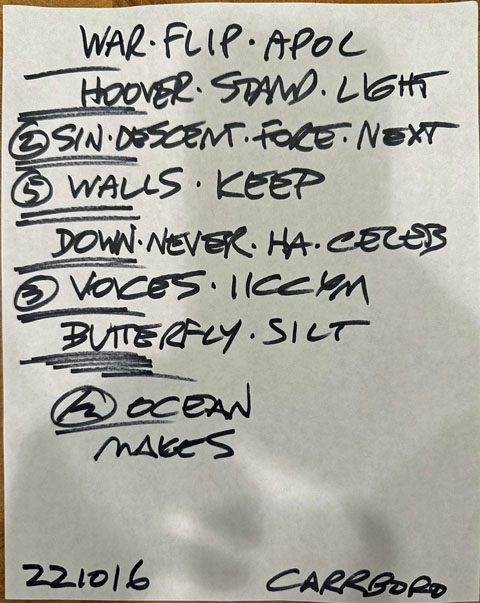 WAR · FLIP · APOL
HOOVER · STAND · LIGHT
② SIN · DESCENT · FORE · NEXT
⑤ WALLS · KEEP
DOWN · NEVER · HA · CELEB
③ VOICES · IICCHM
BUTTERFLY · SILT
OCEAN
MAKES
221016 CARRBORO